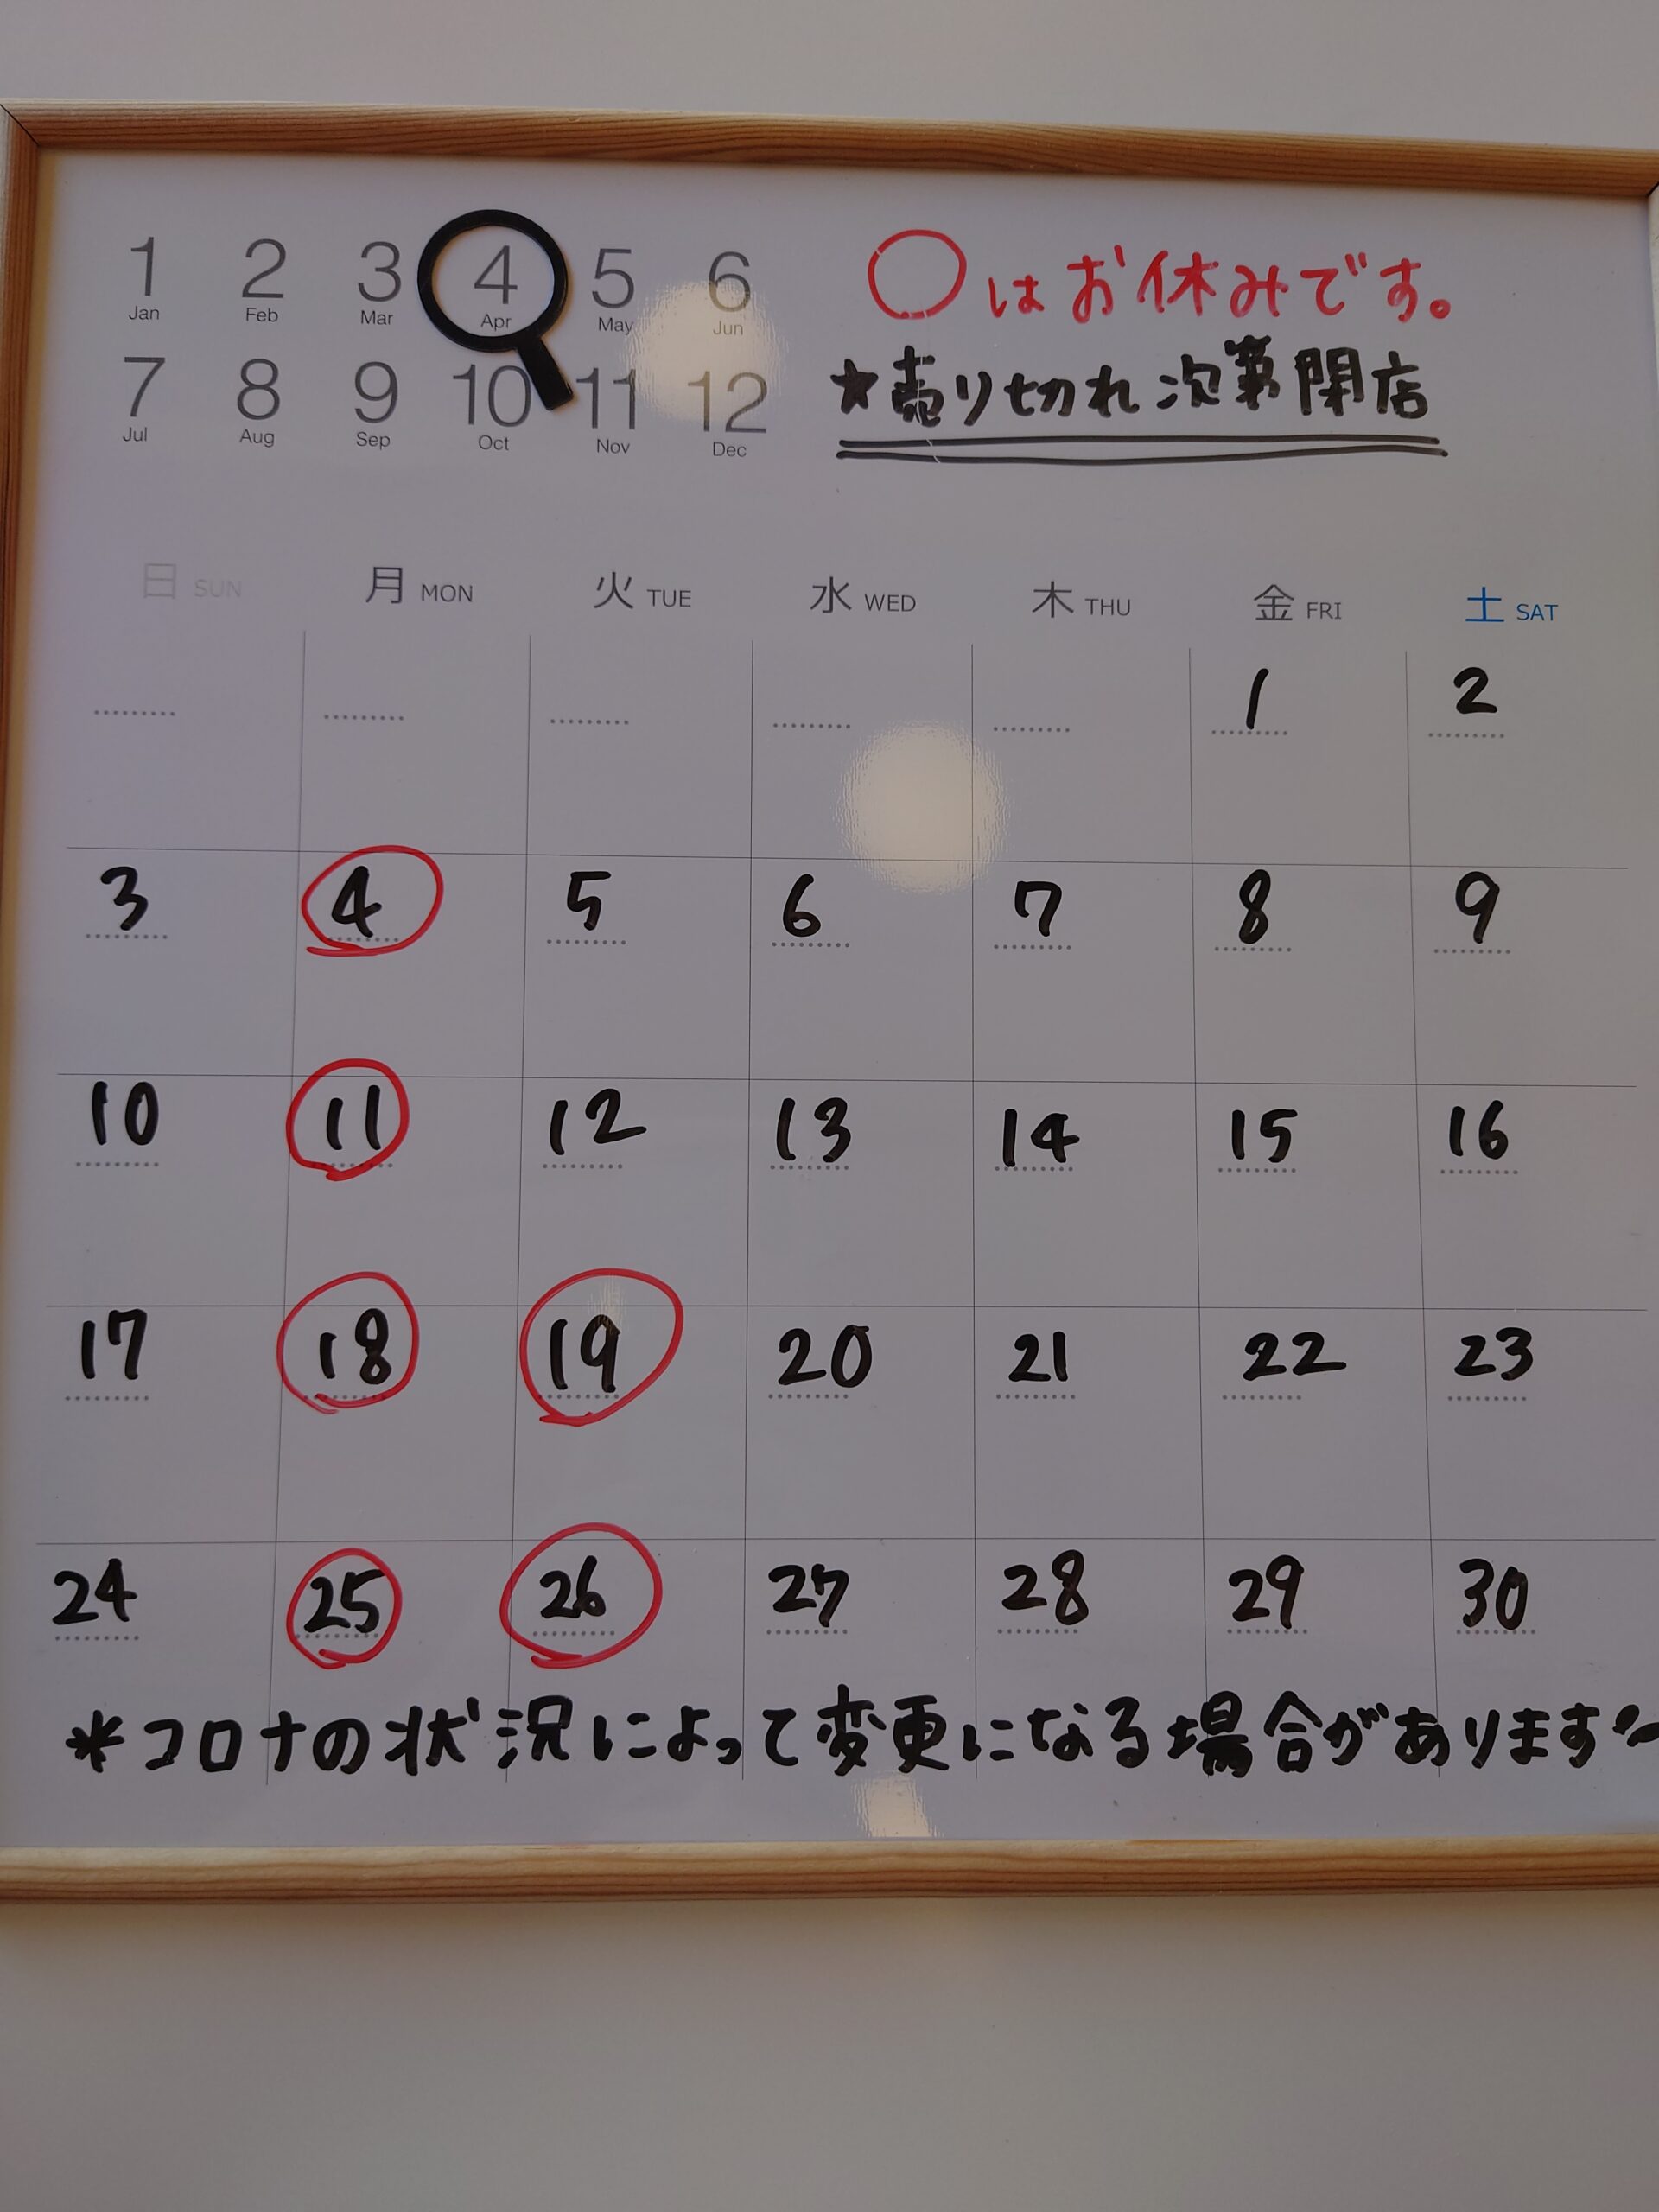 1 2 3 4 5 6
Jan Feb Mar Apr May Jun
7 8 9 10 11 12
Jul Aug Sep Oct Nov Dec
○はお休みです。
★売り切れ次第閉店
日 SUN 月 MON 火 TUE 水 WED 木 THU 金 FRI 土 SAT
1 2
3 4 5 6 7 8 9
10 11 12 13 14 15 16
17 18 19 20 21 22 23
24 25 26 27 28 29 30
*コロナの状況によって変更になる場合があります